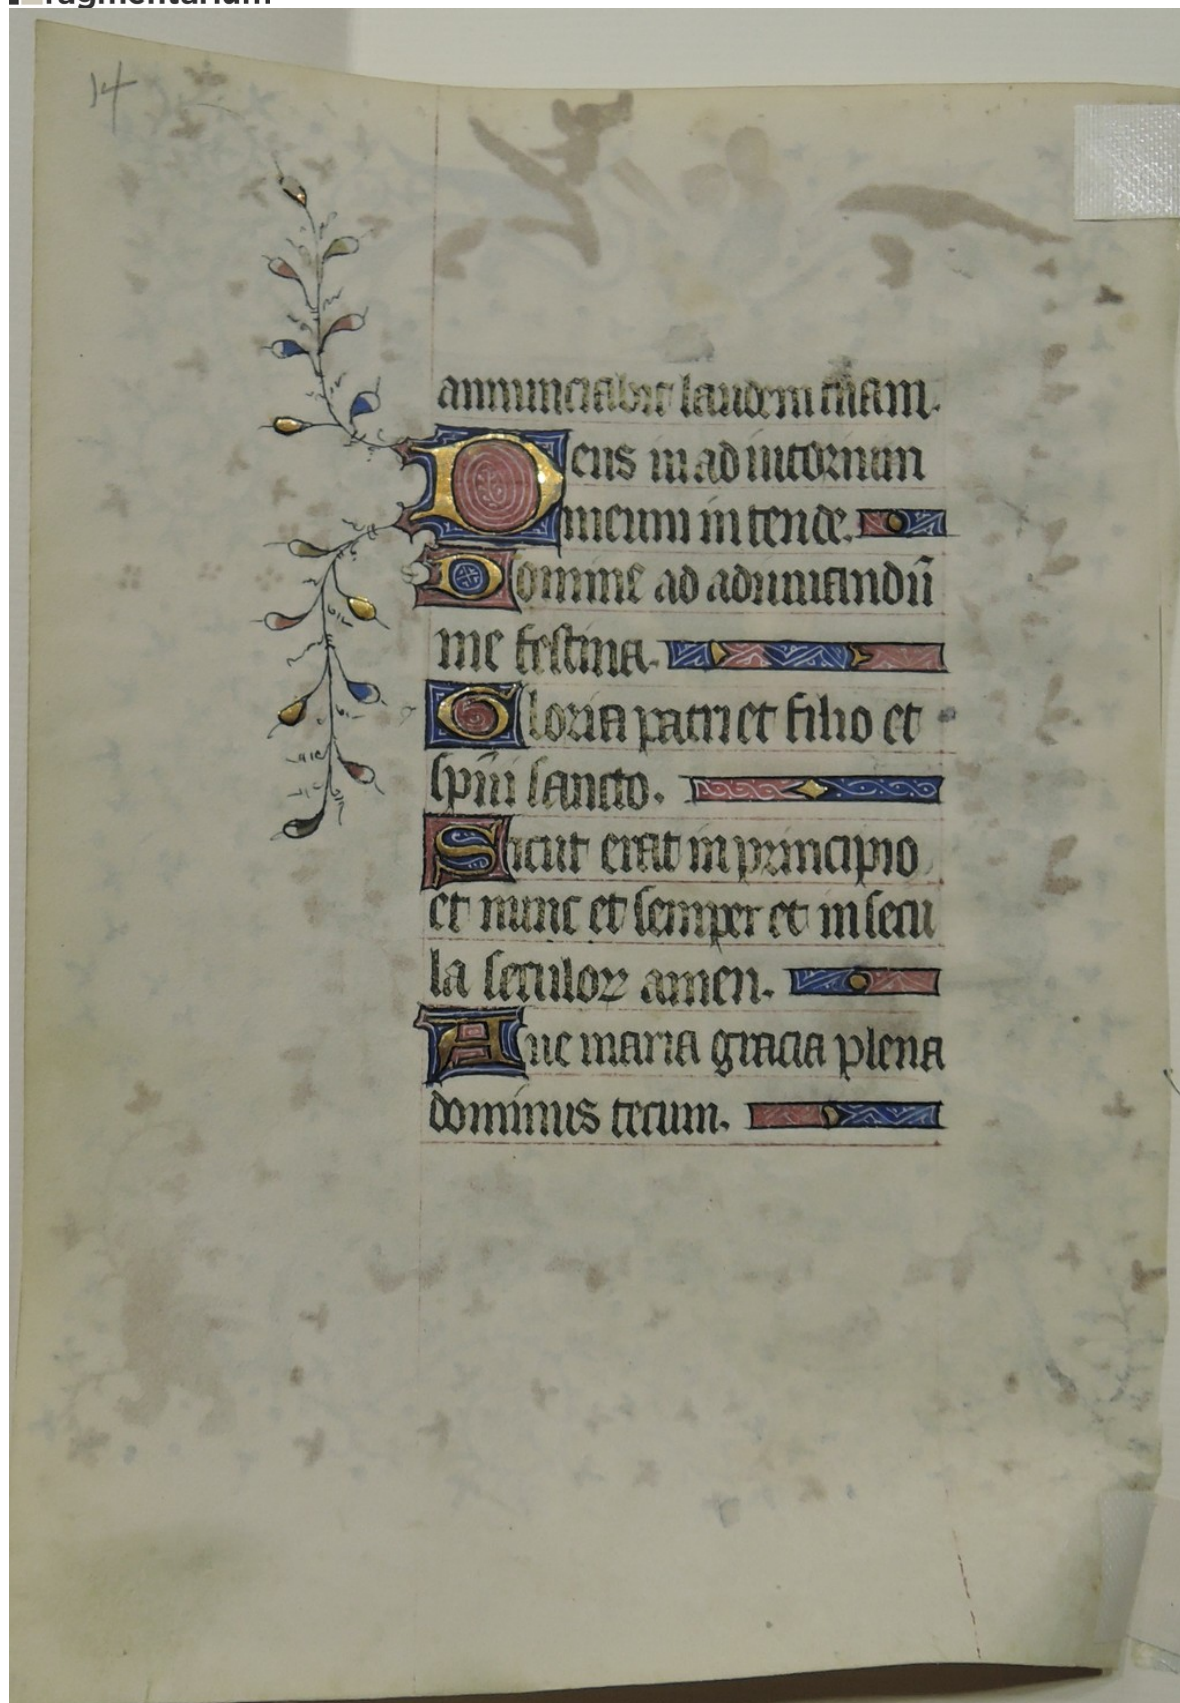 Fragmentarium
14
annunciabit laudem tuam.
Deus in adiutorium
meum intende.
Domine ad adiuuandū
me festina.
Gloria patri et filio et
sp̄ui sancto.
Sicut erat in principio
et nunc et semper et in secu
la seculoꝝ amen.
Aue maria gracia plena
dominus tecum.